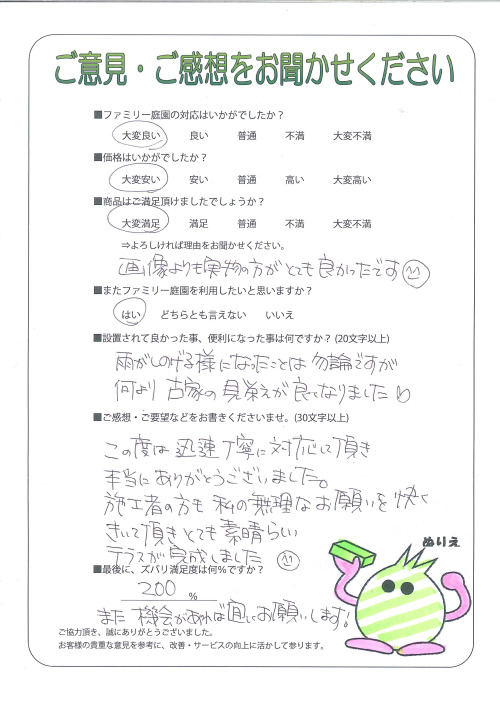 ご意見・ご感想をお聞かせください
■ファミリー庭園の対応はいかがでしたか？
大変良い 良い 普通 不満 大変不満
■価格はいかがでしたか？
大変安い 安い 普通 高い 大変高い
■商品はご満足頂けましたでしょうか？
大変満足 満足 普通 不満 大変不満
⇒よろしければ理由をお聞かせください。
画像よりも実物の方がとても良かったです
■またファミリー庭園を利用したいと思いますか？
はい どちらとも言えない いいえ
■設置されて良かった事、便利になった事は何ですか？(20文字以上)
雨がしのげる様になったことは勿論ですが
何より古家の見栄えが良くなりました
■ご感想・ご要望などをお書きくださいませ。(30文字以上)
この度は迅速丁寧に対応して頂き
本当にありがとうございました。
施工者の方も私の無理なお願いを快く
きいて頂きとても素晴らしい
テラスが完成しました
ぬりえ
■最後に、ズバリ満足度は何％ですか？
200 %
また機会があれば宜しくお願いします!
ご協力頂き、誠にありがとうございました。
お客様の貴重な意見を参考に、改善・サービスの向上に活かして参ります。